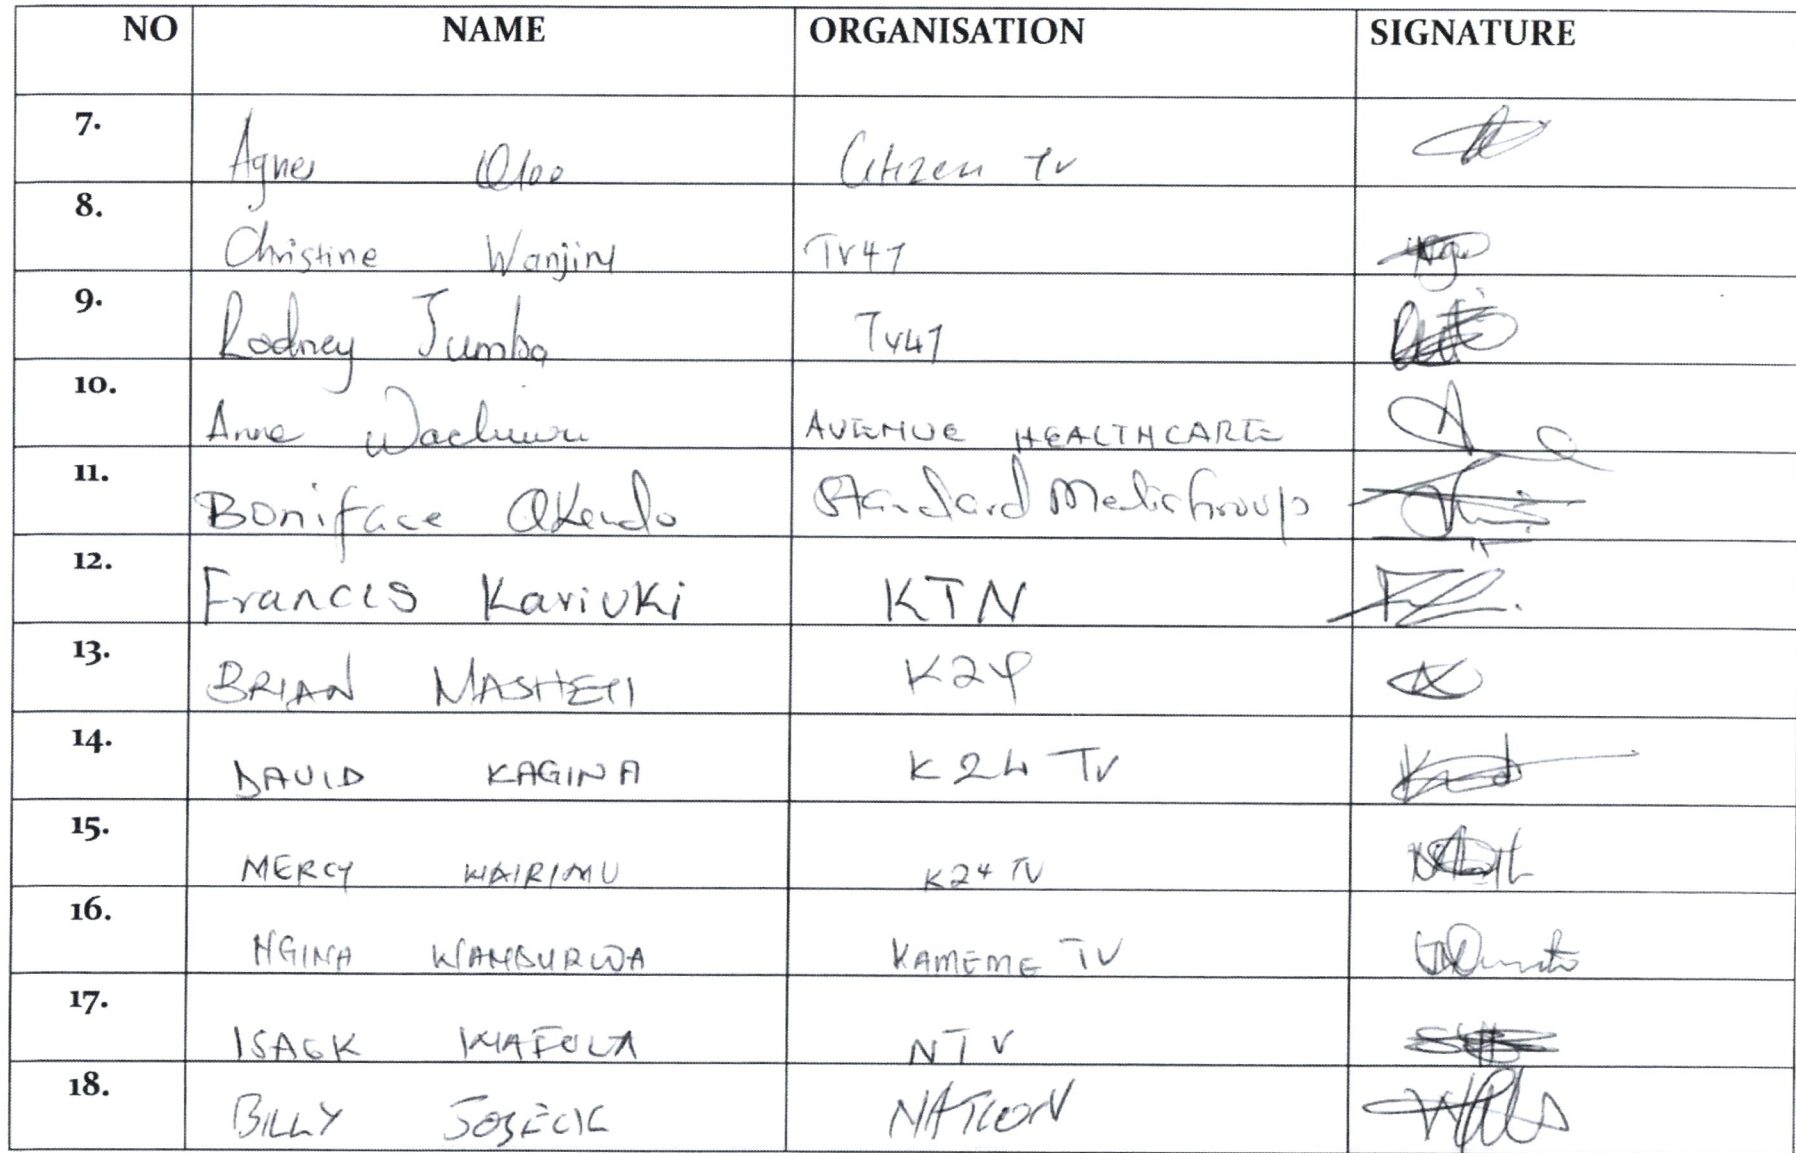 NO NAME ORGANISATION SIGNATURE
7. Agnes Oloo Citizen TV
8. Christine Wanjiru TV47
9. Rodney Jumba TV47
10. Anne Wachiuru AVENUE HEALTHCARE
11. Boniface Okendo Standard Media Group
12. Francis Kariuki KTN
13. BRIAN MASHETI K24
14. DAVID KAGINA K24 TV
15. MERCY WAIRIMU K24 TV
16. NGINA WAMBURWA KAMEME TV
17. ISACK WAFULA NTV
18. BILLY NATION